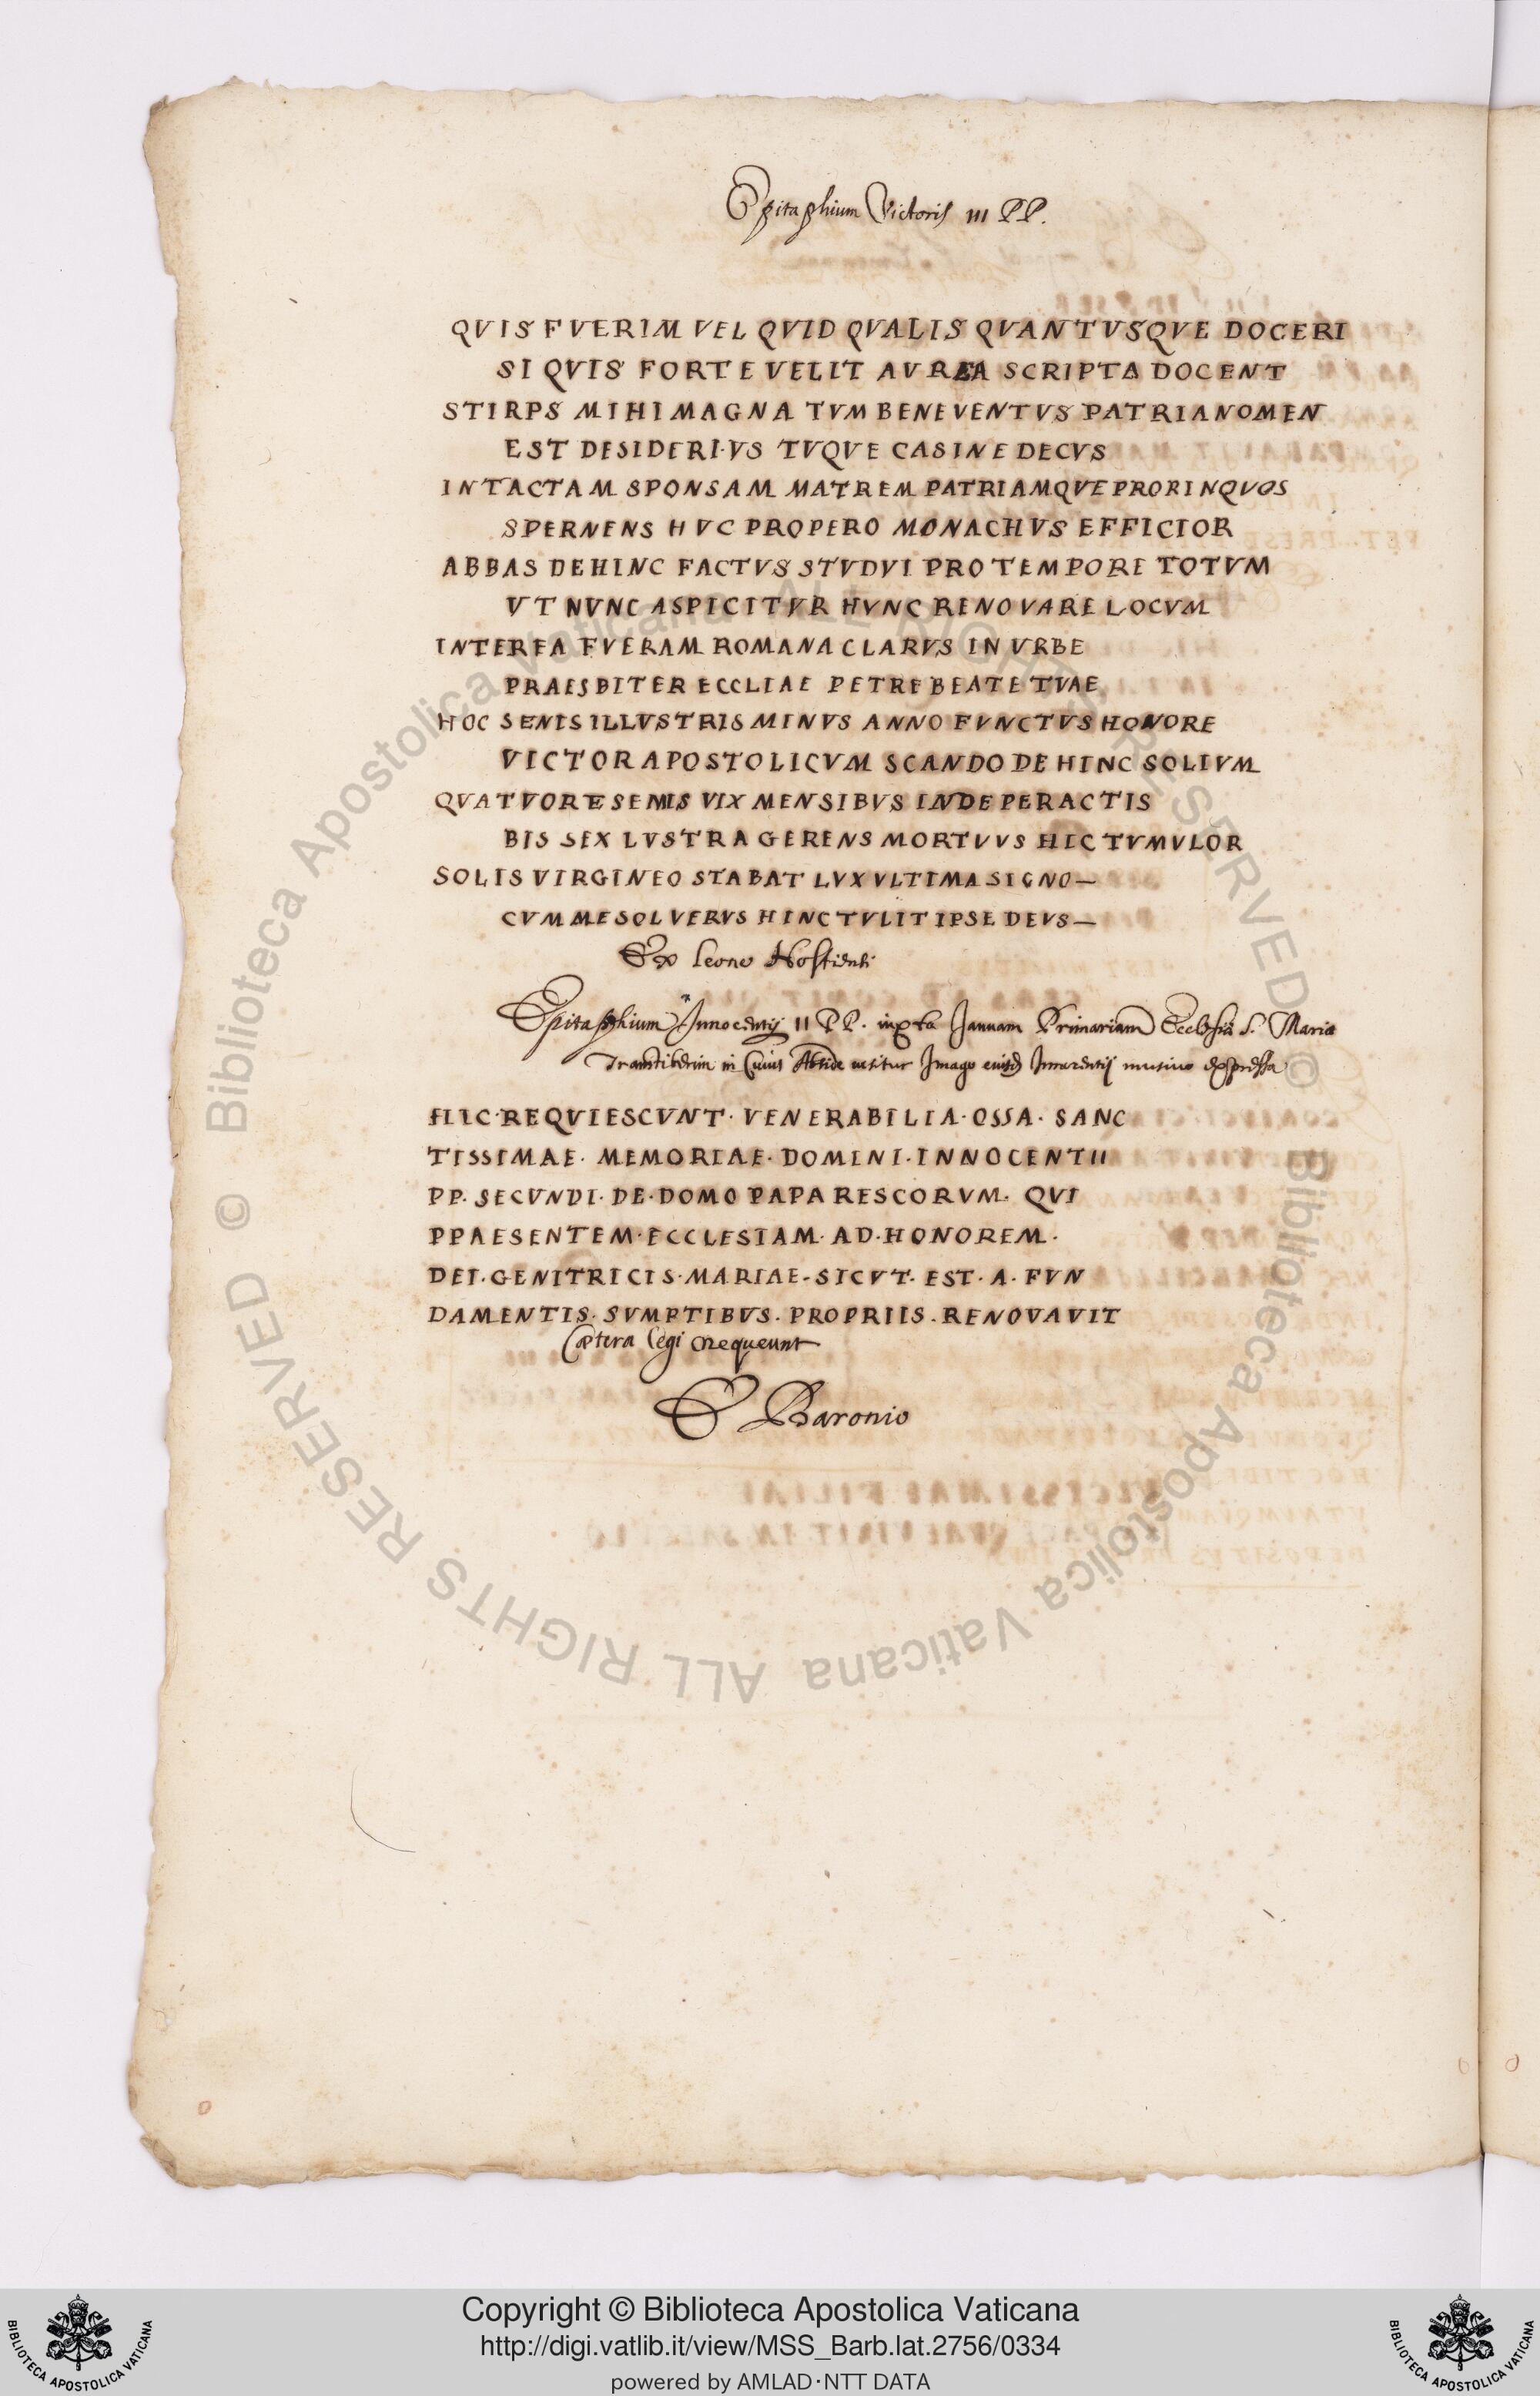 Epitaphium Victoris III PP.
QVIS FVERIM VEL QVID QVALIS QVANTVSQVE DOCERI
SI QVIS FORTE VELIT AVREA SCRIPTA DOCENT
STIRPS MIHI MAGNA TVM BENEVENTVS PATRIA NOMEN
EST DESIDERI·VS TVQVE CASINE DECVS
INTACTAM SPONSAM MATREM PATRIAMQVE PRORINQVOS
SPERNENS HVC PROPERO MONACHVS EFFICIOR
ABBAS DEHINC FACTVS STVDVI PRO TEMPORE TOTVM
VT NVNC ASPICITVR HVNC RENOVARE LOCVM
INTEREA FVERAM ROMANA CLARVS IN VRBE
PRAESBITER ECCLIAE PETRE BEATE TVAE
HOC SENIS ILLVSTRIS MINVS ANNO FVNCTVS HONORE
VICTOR APOSTOLICVM SCANDO DEHINC SOLIVM
QVATVOR E SEMIS VIX MENSIBVS INDE PERACTIS
BIS SEX LVSTRA GERENS MORTVVS HIC TVMVLOR
SOLIS VIRGINEO STABAT LVX VLTIMA SIGNO—
CVM ME SOL VERVS HINC TVLIT IPSE DEVS—
Ex Leone Hostiensi
Epitaphium Innocentij II PP. iuxta Januam Primariam Ecclesia S. Maria
Transtiberim in Cuius Abside Imago Innocentij musiuo expressa
HIC·REQVIESCVNT·VENERABILIA·OSSA·SANC
TISSIMAE·MEMORIAE·DOMINI·INNOCENTII
PP·SECVNDI·DE·DOMO PAPARESCORVM·QVI
PPAESENTEM·ECCLESIAM·AD·HONOREM·
DEI·GENITRICIS·MARIAE·SICVT·EST·A·FVN
DAMENTIS·SVMPTIBVS·PROPRIIS·RENOVAVIT
Cætera legi nequeunt
Baronio
© Biblioteca Apostolica Vaticana ALL RIGHTS RESERVED
© Biblioteca Apostolica Vaticana ALL RIGHTS RESERVED
Copyright © Biblioteca Apostolica Vaticana
http://digi.vatlib.it/view/MSS_Barb.lat.2756/0334
powered by AMLAD·NTT DATA
BIBLIOTECA APOSTOLICA VATICANA
BIBLIOTECA APOSTOLICA VATICANA